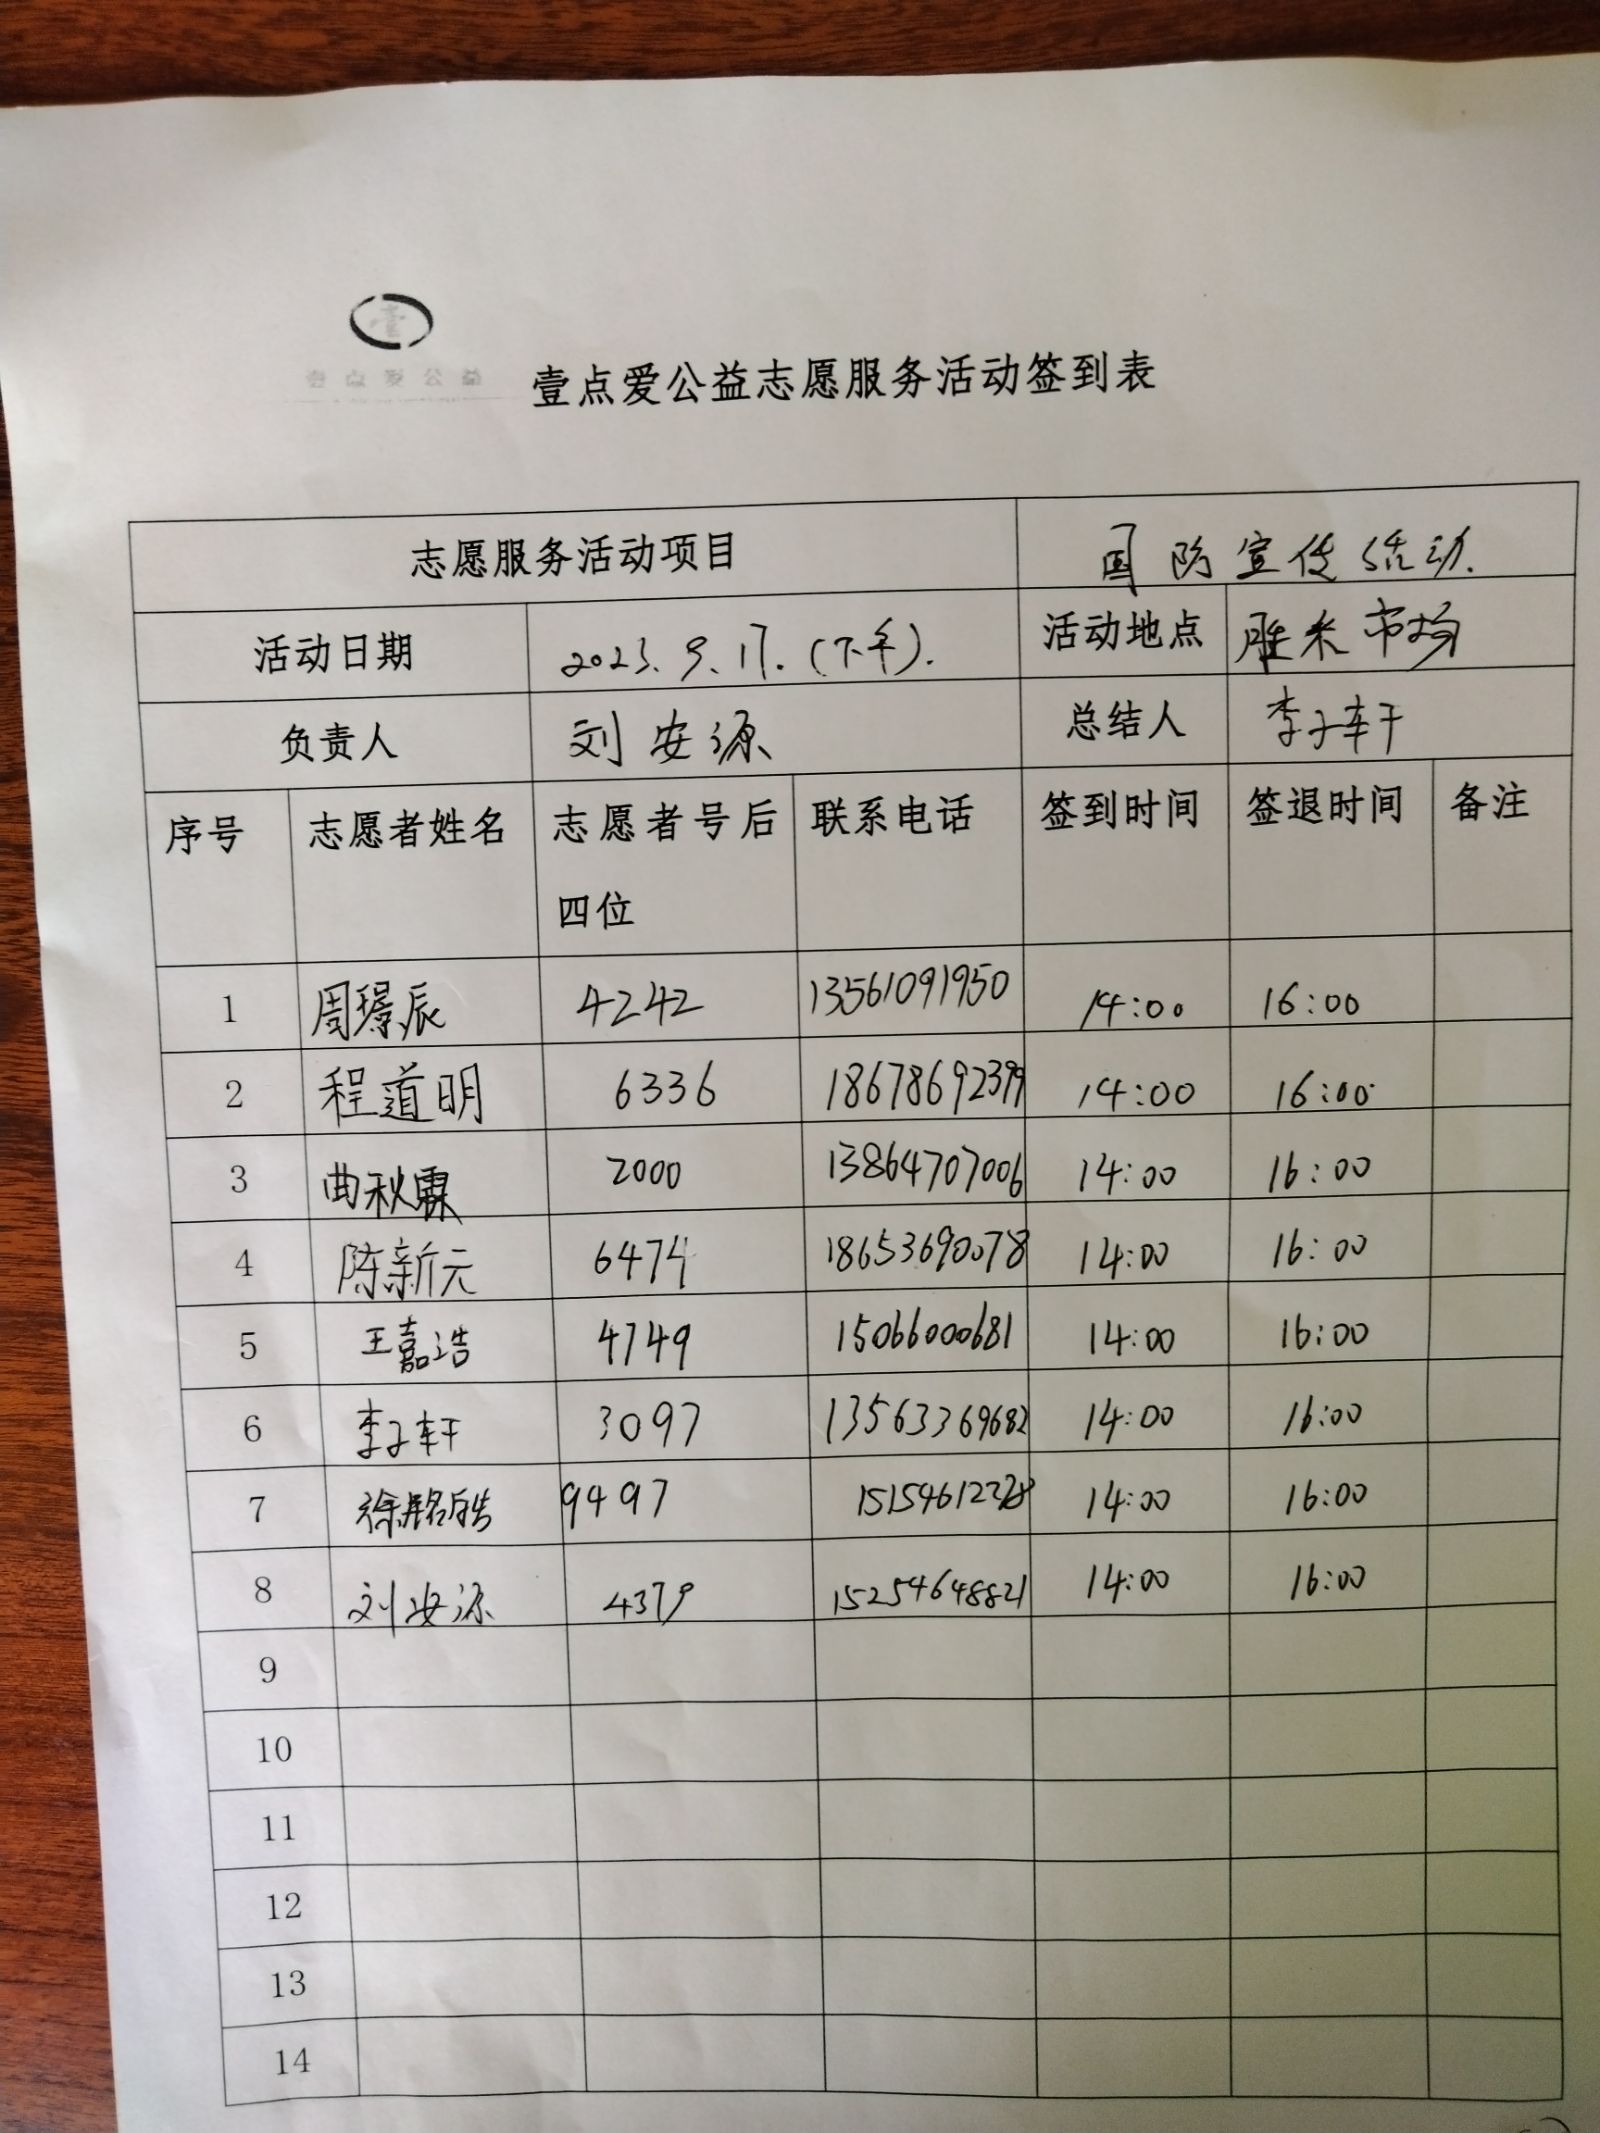 壹
壹点爱公益
壹点爱公益志愿服务活动签到表
志愿服务活动项目 国防宣传活动.
活动日期 2023.9.17.(下午). 活动地点 胜米市场
负责人 刘安源 总结人 李子轩
序号 志愿者姓名 志愿者号后四位 联系电话 签到时间 签退时间 备注
1 周璟辰 4242 13561091950 14:00 16:00
2 程道明 6336 18678692399 14:00 16:00
3 曲秋霖 2000 13864707006 14:00 16:00
4 陈新元 6474 18653690078 14:00 16:00
5 王嘉浩 4749 15066000681 14:00 16:00
6 李子轩 3097 13563369682 14:00 16:00
7 徐铭皓 9497 14:00 16:00
8 刘安源 4379 15254648821 14:00 16:00
9
10
11
12
13
14